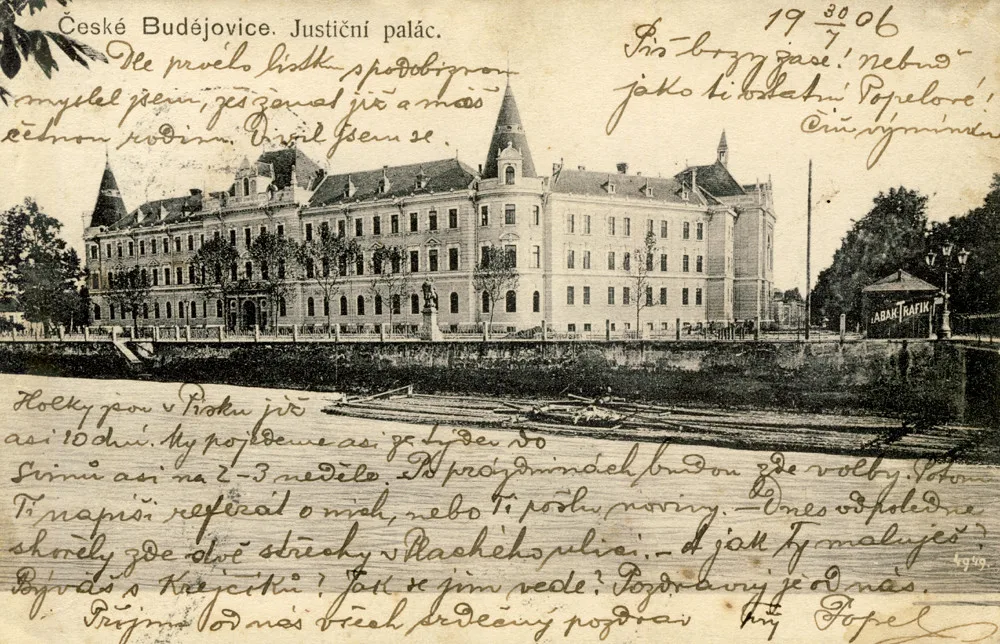 České Budějovice. Justiční palác.
19 30/7 06
Dle prvého lístku s podobiznou
myslel jsem, žes ženat již a máš
četnou rodinu. Divil jsem se.
Piš brzy zase! Nebuď
jako ti ostatní Popelové!
Čiň výminku
TABAK-TRAFIK
Holky jsou v Písku již
asi 10 dnů. My pojedeme asi za týden do
Svinů asi na 2-3 neděle. Po prázdninách budou zde volby. Potom
Ti napíši referát o nich, nebo Ti pošlu noviny. - Dnes odpoledne
shořely zde dvě střechy v Plachého ulici. - A jak Ty maluješ?
Býváš s Krejčíků? Jak se jim vede? Pozdravuj je od nás.
Přijmi od nás všech srdečný pozdrav Tvůj Popel
4949.